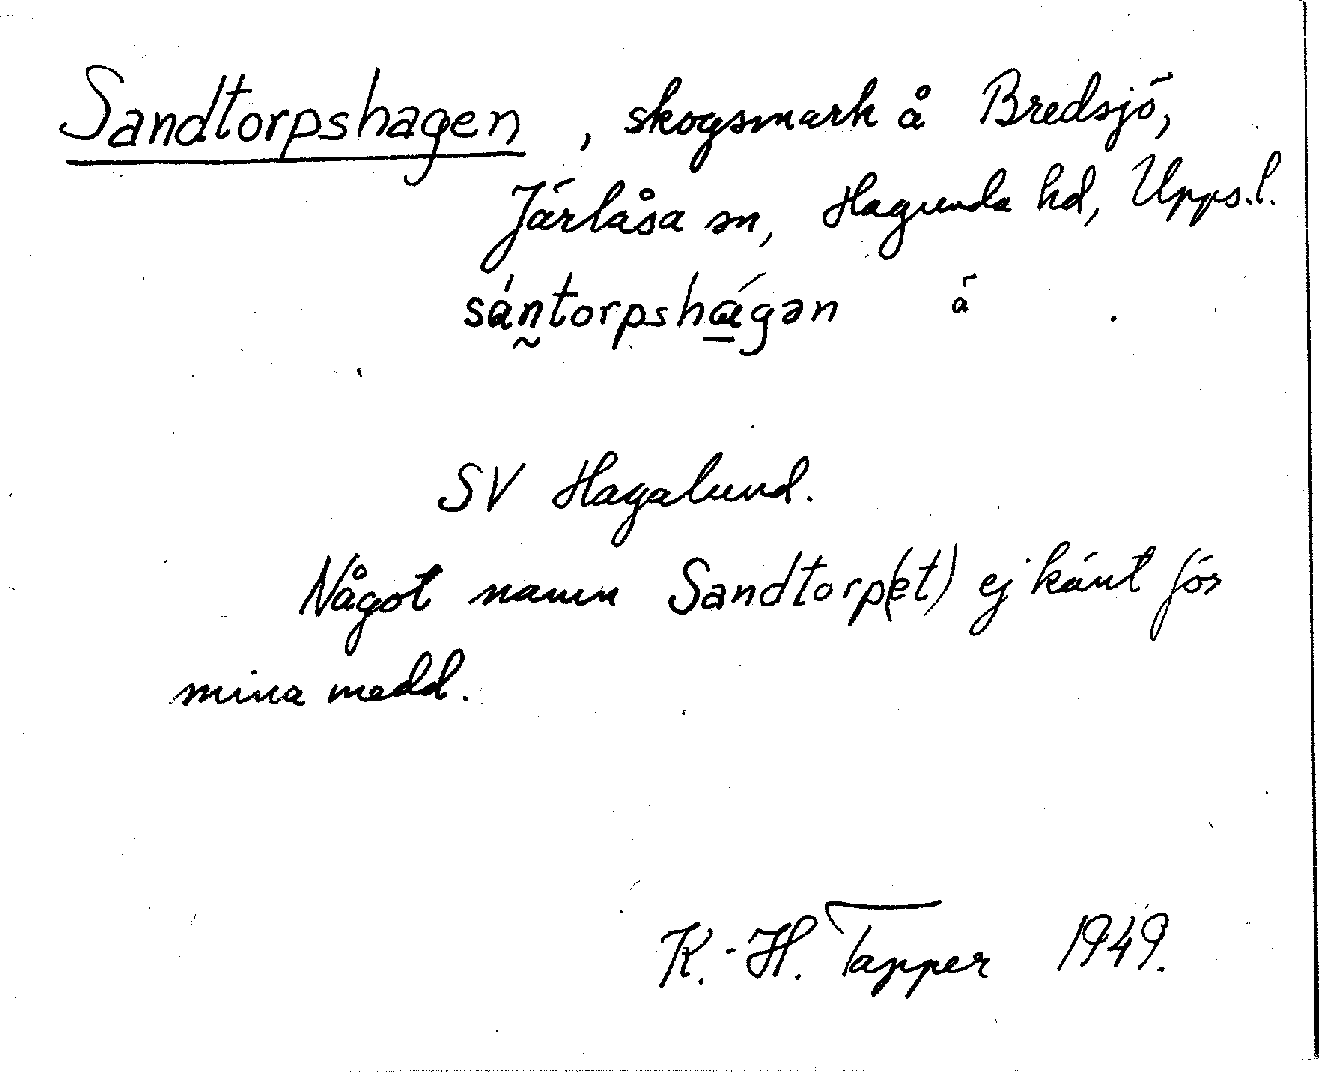 Sandtorpshagen, skogsmark å Bredsjö,
Järlåsa sn, Hagunda hd, Upps.l.
sán̰torpshá̱gən á
SV Hagalund.
Något namn Sandtorp(et) ej känt för
mina medd.
K.-H. Tapper 1949.